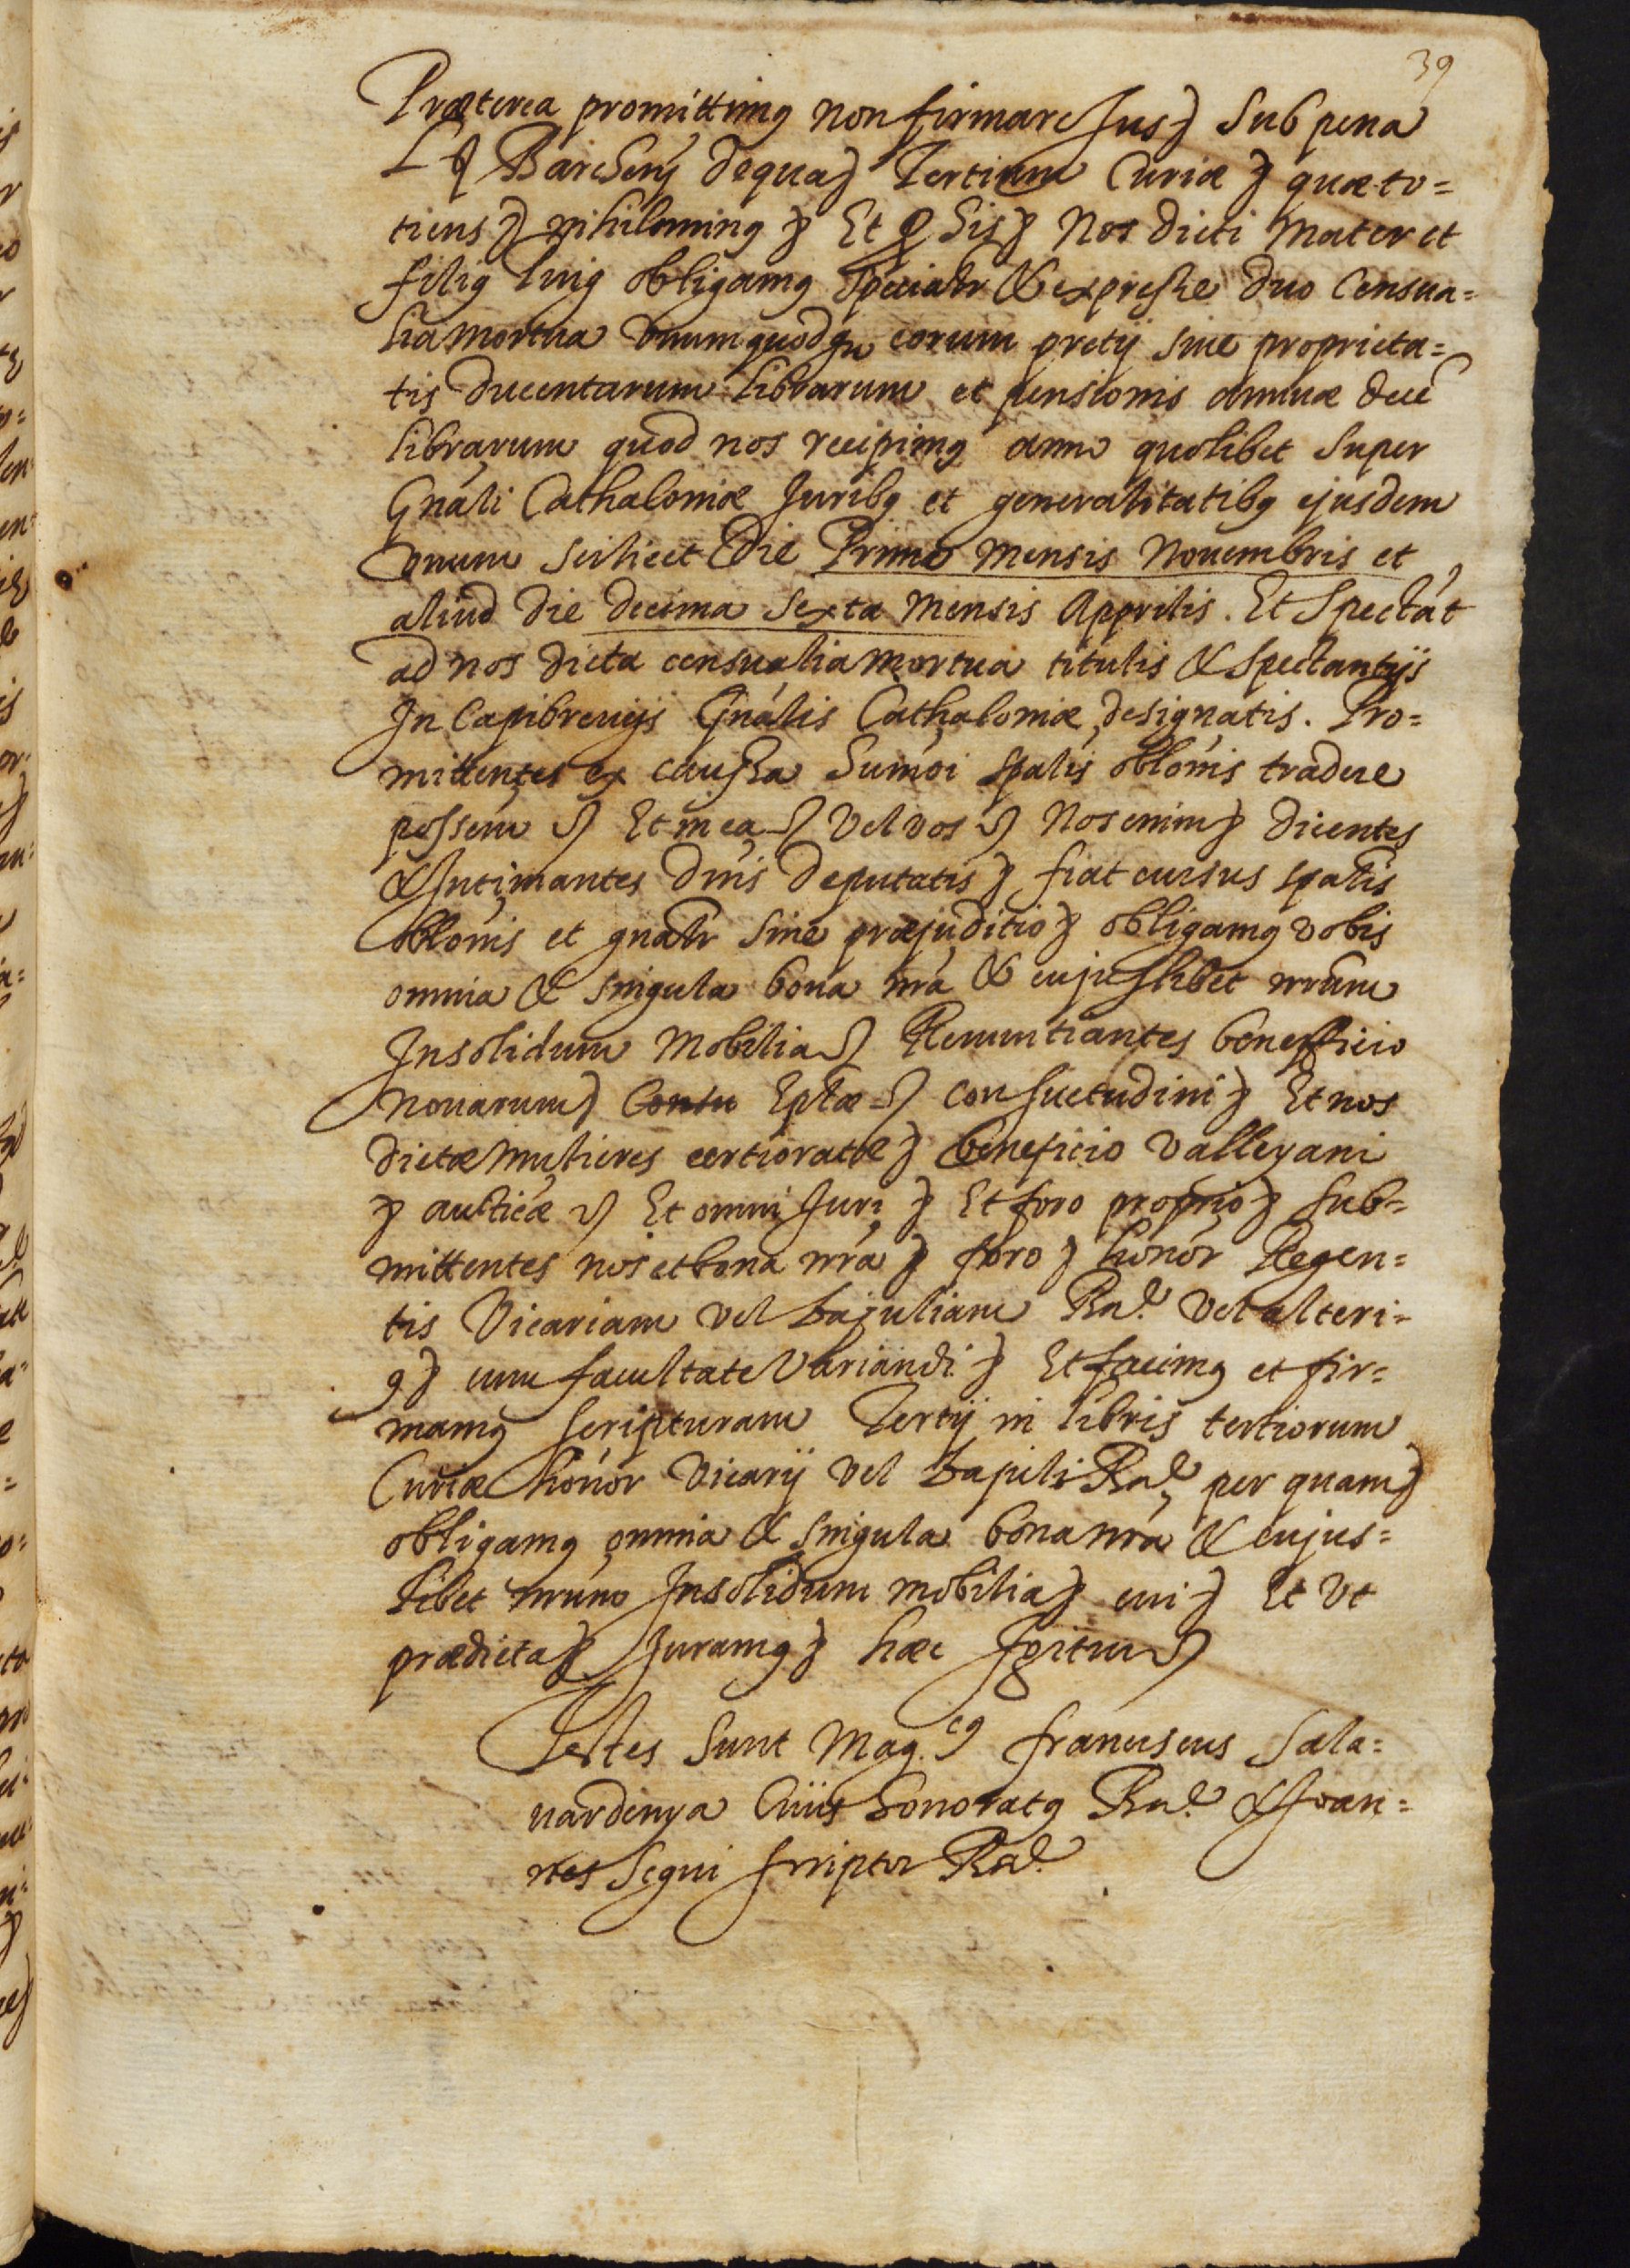 39
Præterea promittimꝰ non firmare Jus ꝫ Sub pena
L ₰ Barchenꝭ de qua ꝫ Tertium Curiæ ꝫ quæ to=
tiens ꝫ nihilominꝰ ꝫ Et ꝓ his ꝫ Nos dicti Mater et
filiꝰ Puig obligamꝰ specialr & expresse duo Censua=
lia mortua Vnumquodqꝫ eorum pretij siue proprieta=
tis ducentarum librarum et pensionis annuæ decē
librarum quod nos recipimꝰ anno quolibet super
Gñali Cathaloniæ Juribꝰ et generalitatibꝰ ejusdem
Vnum scilicet die Primo Mensis Nouembris et
aliud die decima sexta Mensis Apprilis. Et spectāt
ad nos dicta censualia mortua titulis & spectantijs
In Capibreuijs Gñalis Cathaloniæ designatis. Pro=
mittentes ex caussa Sumōi spalis oblonis tradere
possem ꝫ Et in ea ꝫ Vel vos ꝫ Nos enim ꝫ dicentes
& Intimantes dnis deputatis ꝫ fiat cursus spalis
oblonis et gnalr sine præjuditio ꝫ obligamꝰ vobis
omnia & singula bona nra & cujuslibet nrum
Insolidum Mobilia ꝫ Renuntiantes benefficio
nouarum ꝫ Eplæ ꝫ Consuetudini ꝫ Et nos
dictæ mulieres certioratæ ꝫ beneficio valleyani
ꝫ aucticæ ꝫ Et omni Juri ꝫ Et foro proprio ꝫ sub=
mittentes nos et bona nra ꝫ foro ꝫ honor Regen=
tis Vicariam vel bajuliam Bñe. Vel alteri=
ꝰ ꝫ cum facultate Variandi ꝫ Et facimꝰ et fir=
mamꝰ scripturam Tertij in libris tertiorum
Curiæ honor Vicarij vel bajuli Bñe per quam ꝫ
obligamꝰ omnia & singula bona nra & cujus=
libet nrum Insolidum mobilia ꝫ cui ꝫ Et Vt
prædicta ꝫ Juramꝰ ꝫ hæc Igitur ꝫ
Testes sunt Mag.cꝰ franciscus Sala=
uardenya Ciuis honoratꝰ Bñe. & Joan=
nes Segui scriptor Bñe.